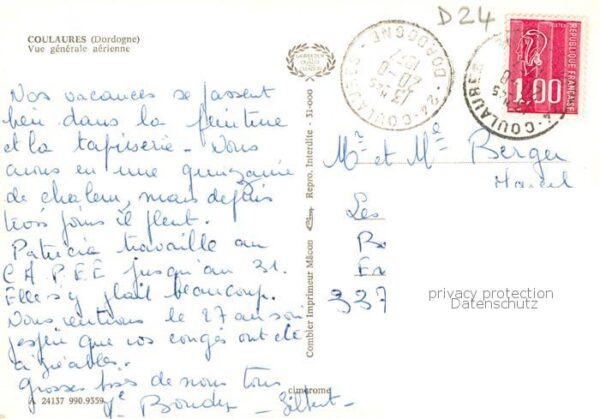 D24
COULAURES (Dordogne)
Vue générale aérienne
REPUBLIQUE FRANÇAISE
POSTES
1.00
24 - COULAURES
DORDOGNE
13 H 45
20 - 8
COULAURES
Nos vacances se passent
bien dans la peinture
et la tapisserie - Nous
avons eu une quinzaine
de chaleur, mais depuis
trois jours il pleut.
Patricia travaille au
C A P E E jusqu'au 31.
Elle s'y plaît beaucoup.
Nous rentrons le 27 au soir
j'espère que vos congés ont été
agréables.
Grosses bises de nous tous
Gilbert
Mr et Me Berger
Marcel
Les
Bo
337
Combier Imprimeur Mâcon
Repro. Interdite - 31-000
cimcrome
A 24137 990.9359
privacy protection
Datenschutz